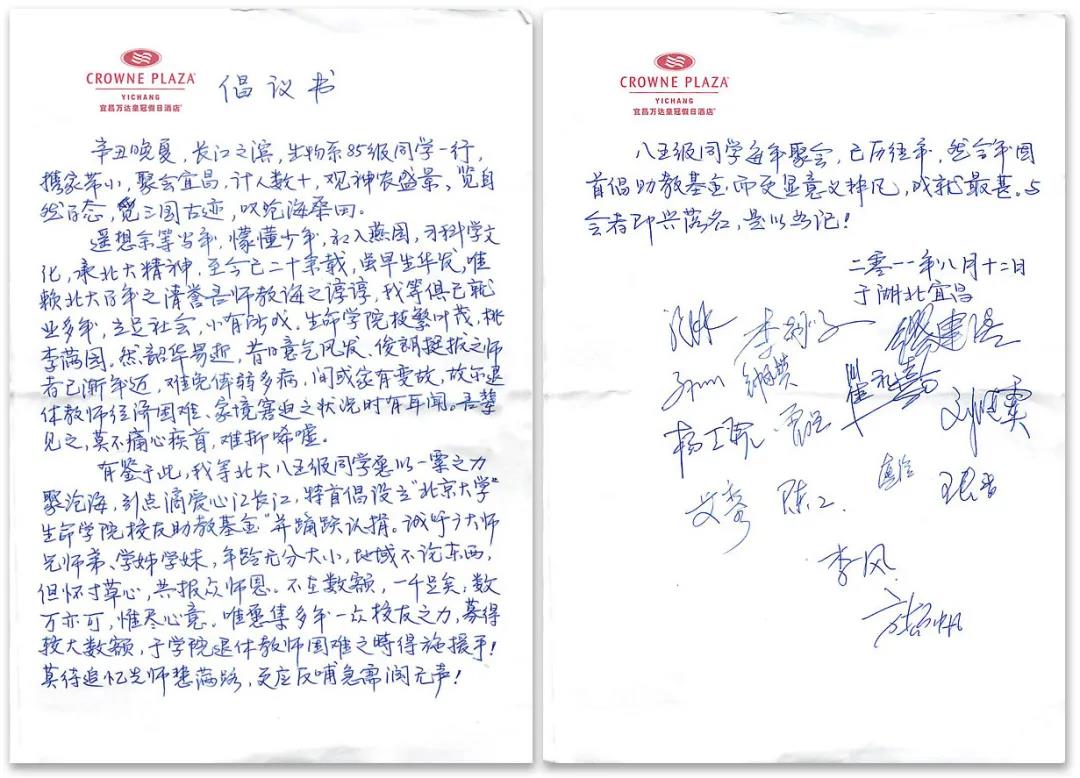 CROWNE PLAZA
YICHANG
宜昌万达皇冠假日酒店
倡议书
辛丑晚夏，长江之滨，生物系85级同学一行，
携家带小，聚会宜昌，计人数十，观神农盛景，览自
然百态，览三国古迹，叹沧海桑田。
遥想余等当年，懵懂少年，初入燕园，习科学文
化，承北大精神，至今已二十余载，虽早生华发，唯
赖北大百年之清誉吾师教诲之谆谆，我等俱已就
业多年，立足社会，小有所成。生命学院枝繁叶茂，桃
李满园。然韶华易逝，昔日意气风发、俊朗挺拔之师
者已渐年迈，难免体转多病，间或家有变故，故尔退
休教师经济困难、家境窘迫之状况时有耳闻。吾辈
见之，莫不痛心疾首，难抑唏嘘。
有鉴于此，我等北大八五级同学愿以一粟之力
聚沧海，引点滴爱心汇长江，特首倡设立"北京大学
生命学院校友助教基金"并踊跃认捐。诚呼广大师
兄师弟、学姊学妹，年龄无分大小，地域不论东西，
但怀寸草心，共报众师恩。不在数额，一千足矣，数
万亦可，惟尽心意。唯愿集多年一众校友之力，募得
较大数额，于学院退休教师困难之时得施援手！
莫待追忆先师愁满路，更应反哺急需润无声！
CROWNE PLAZA
YICHANG
宜昌万达皇冠假日酒店
八五级同学每年聚会，已历往年，然今年因
首倡助教基金而更显意义神凡，成就最甚。与
会者即兴落名，是以为记！
二零一一年八月十二日
于湖北宜昌
杨
艾
陈
李风